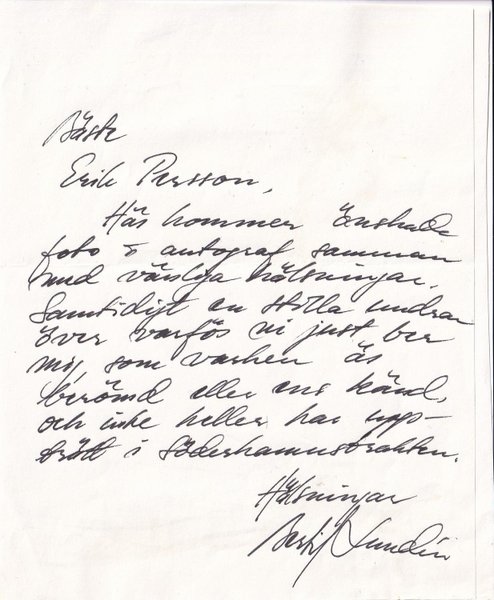 Bäste
Erik Persson,
Här kommer önskade
foto & autograf samman
med vänliga hälsningar.
Samtidigt en stilla undran
över varför ni just ber
mig, som varken är
berömd eller ens känd,
och inte heller har upp-
trätt i Söderhamnstrakten.
Hälsningar
Bertil Lundin